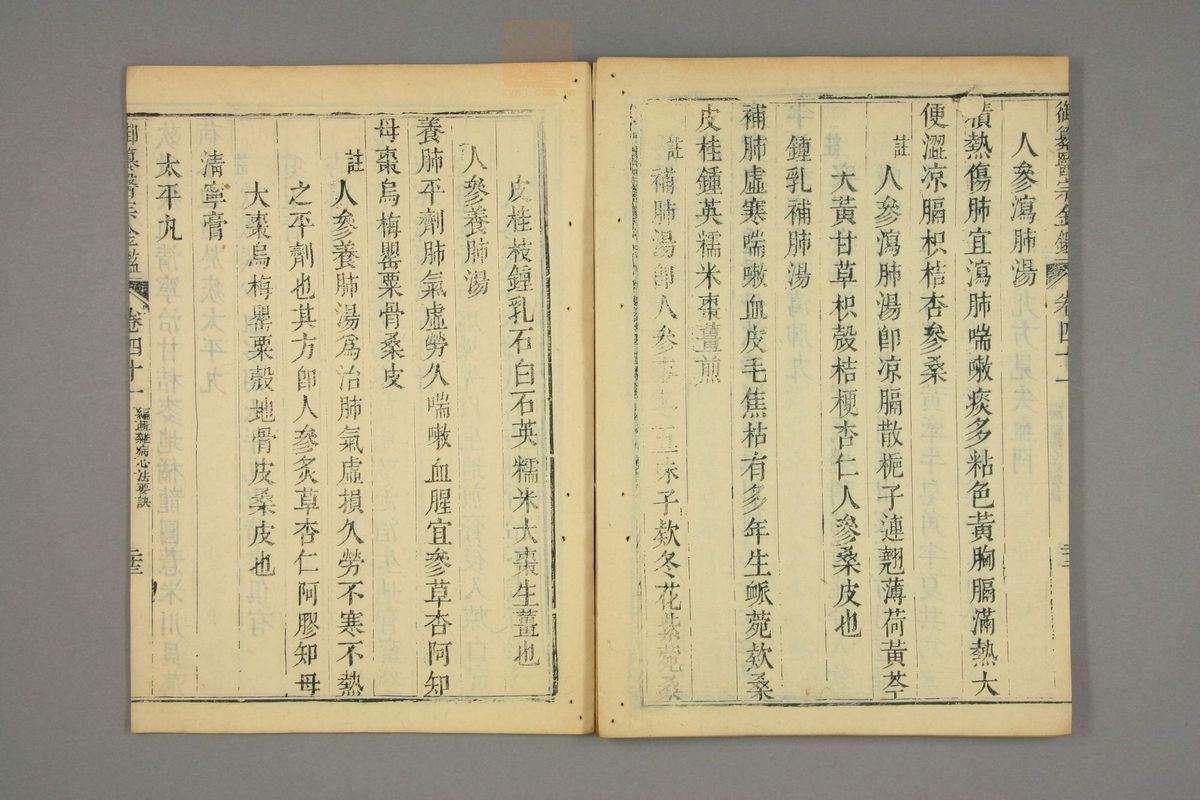 御纂醫宗金鑑
卷四十一
人參瀉肺湯
積熱傷肺宜瀉肺喘嗽痰多粘色黃胸膈滿熱大
便澀凉膈枳桔杏參桑
註
人參瀉肺湯卽凉膈散梔子連翹薄荷黃芩
大黃甘草枳殼桔梗杏仁人參桑皮也
鍾乳補肺湯
補肺虛寒喘嗽血皮毛焦枯有多年生脈菀欵桑
皮桂鍾英糯米棗薑煎
註
補肺湯卽人參麥冬五味子欵冬花紫菀桑
皮桂枝鍾乳石白石英糯米大棗生薑也
人參養肺湯
養肺平劑肺氣虛勞久喘嗽血腥宜參草杏阿知
母棗烏梅罌粟骨桑皮
註
人參養肺湯爲治肺氣虛損久勞不寒不熱
之平劑也其方卽人參炙草杏仁阿膠知母
大棗烏梅罌粟殼地骨皮桑皮也
清寧膏
太平丸
御纂醫宗金鑑
卷四十一
編輯雜病心法要訣